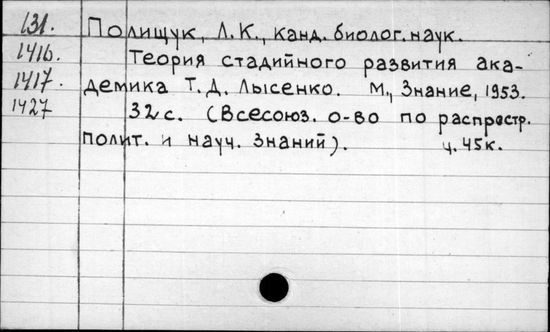 131. Полищук, Л.К., канд. биолог. наук.
1416. Теория стадийного развития ака-
1417. демика Т. Д. Лысенко. М., Знание, 1953.
1427 32 с. (Всесоюз. о-во по распростр.
полит. и науч. знаний). ц. 45к.